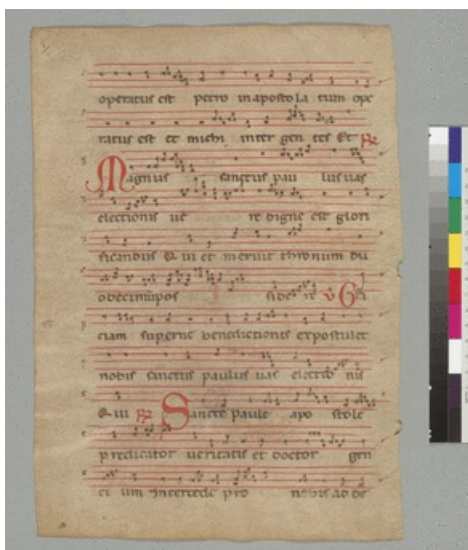 operatus est petro in aposto la tum ope
ratus est et michi inter gen tes Et
Magnus sanctus pau lus uas
electionis ue re digne est glori
ficandus Q ui et meruit thronum du
odecimum pos side re V G
ciam superne benedictionis expostulet
nobis sanctus paulus uas electio nis
Q ui Sancte paule apo stole
predicator ueritatis et doctor gen
ci um Intercede pro nobis ad de